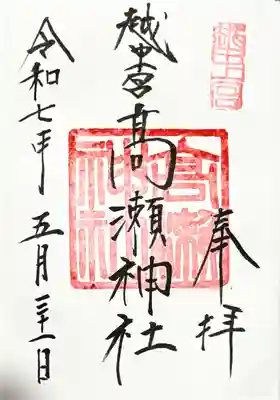 越中一宮
奉拝
越中一宮高瀬神社
高瀬神社
令和七年五月日